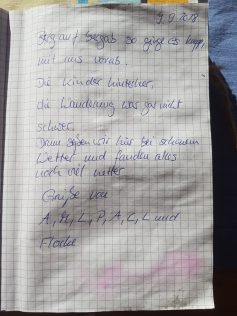 9.9.2018
Berg auf Bergab so ging es
mit uns vorab.
Die Kinder hinterher,
die Wanderung war gar nicht
schwer.
Dann saßen wir hier bei schönem
Wetter und fanden alles
noch viel netter.
Grüße von
A, M, L, P, A, C, L und
Flocke